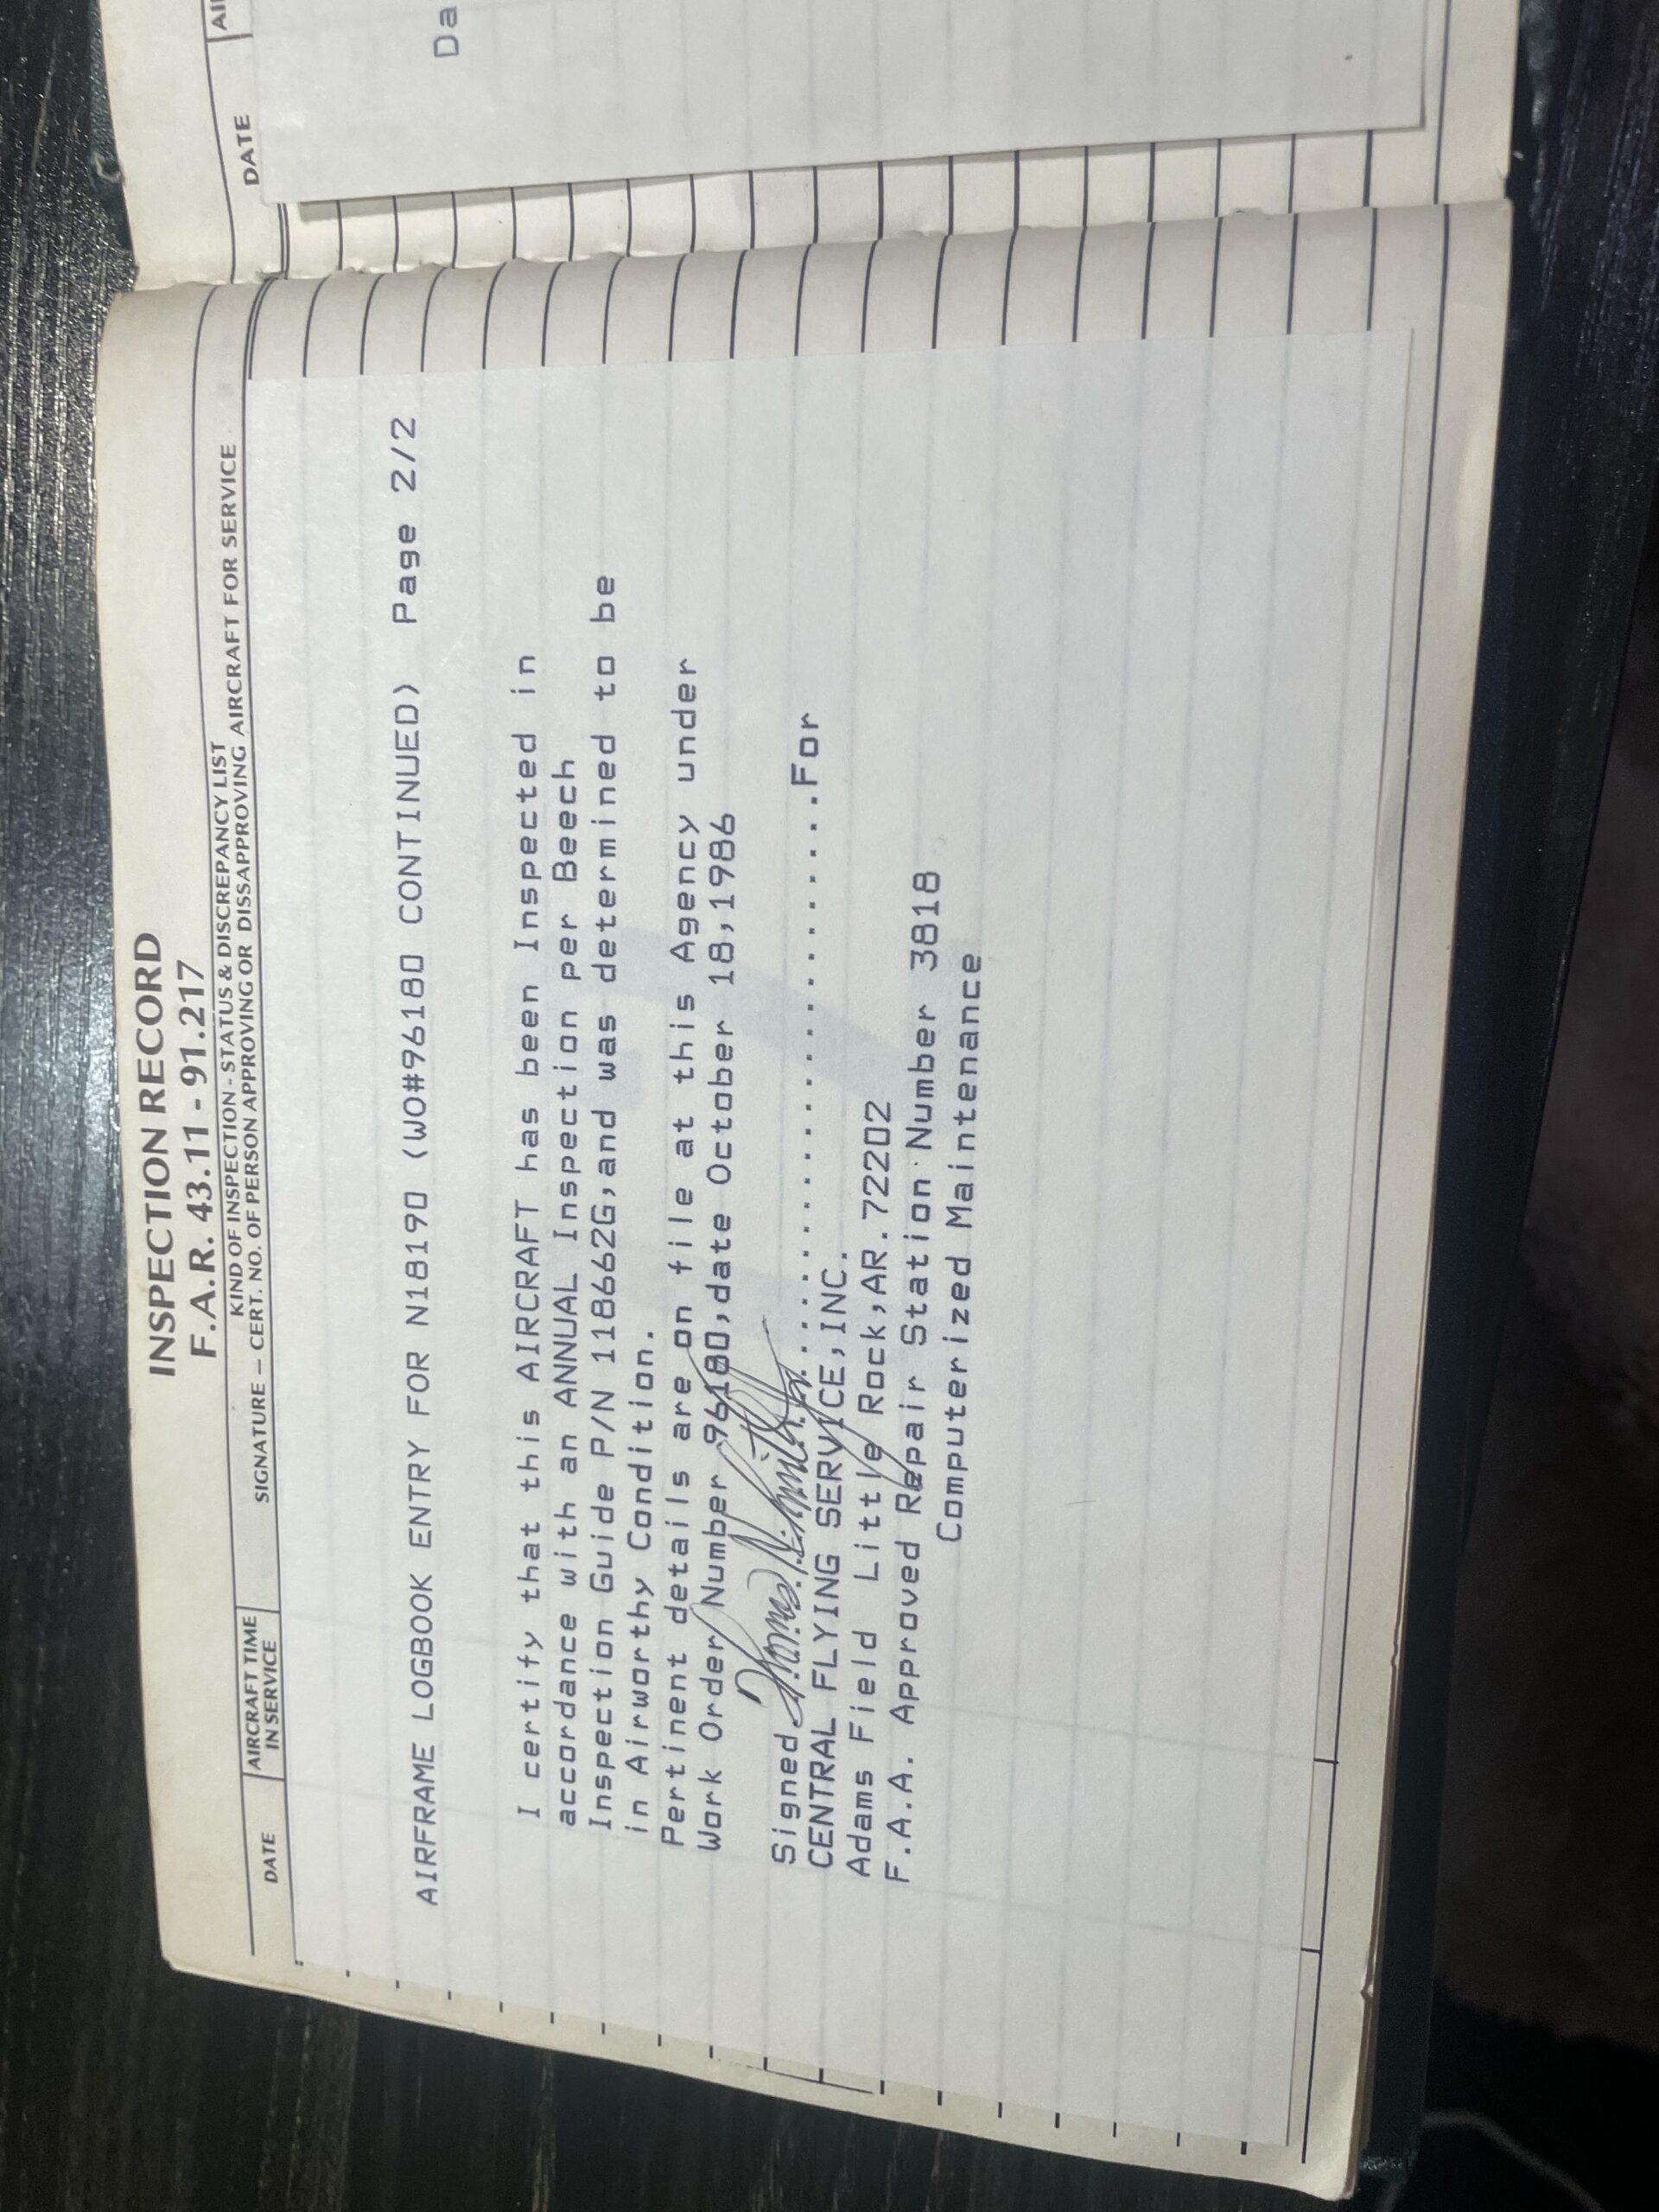 INSPECTION RECORD
F.A.R. 43.11 - 91.217
DATE
AIRCRAFT TIME
IN SERVICE
KIND OF INSPECTION - STATUS & DISCREPANCY LIST
SIGNATURE – CERT. NO. OF PERSON APPROVING OR DISAPPROVING AIRCRAFT FOR SERVICE
AIRFRAME LOGBOOK ENTRY FOR N18190 (WO#96180 CONTINUED) Page 2/2
I certify that this AIRCRAFT has been Inspected in
accordance with an ANNUAL Inspection per Beech
Inspection Guide P/N 118662G,and was determined to be
in Airworthy Condition.
Pertinent details are on file at this Agency under
Work Order Number 96180,date October 18,1986
Signed..............................For
CENTRAL FLYING SERVICE,INC.
Adams Field Little Rock,AR.72202
F.A.A. Approved Repair Station Number 3818
Computerized Maintenance
DATE
AI
Da